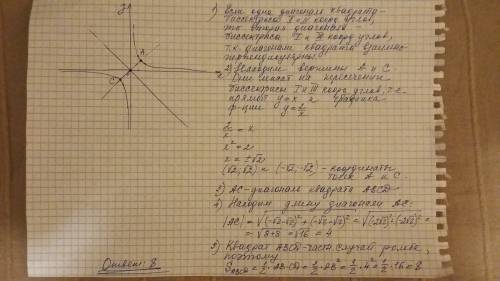 y
A
C
x
1) Если одна диагональ квадрата -
биссектриса II и IV коорд. углов,
то вторая диагональ -
биссектриса I и III коорд. углов,
т.к. диагонали квадрата взаимно
перпендикулярны.
2) Находим вершины A и C.
Они лежат на пересечении
биссектрисы I и III коорд. углов, т.е.
прямой y = x и графика
ф-ции y = 2/x
2/x = x
x² = 2
x = ±√2
(√2; √2) и (-√2; -√2) - координаты
точек A и C.
3) AC - диагональ квадрата ABCD
4) Находим длину диагонали AC:
|AC| = √(-√2-√2)² + (-√2-√2)² = √(-2√2)² + (-2√2)² =
= √8+8 = √16 = 4
5) Квадрат ABCD - частн. случай ромба,
поэтому
S ABCD = 1/2 · AB · CD = 1/2 · AB² = 1/2 · 4² = 1/2 · 16 = 8
Ответ: 8